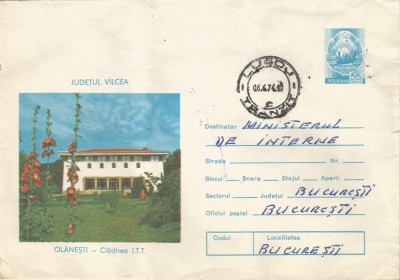 JUDEȚUL VILCEA
LUDUȘ
06.6.74
TRANZIT
55
Destinatar MINISTERUL
DE INTERNE
Strada Nr.
Blocul Scara Etajul Apart.
Sectorul Județul BUCUREȘTI
Oficiul poștal BUCUREȘTI
Codul Localitatea
BUCUREȘTI
OLĂNEȘTI – Clădirea I.T.T.